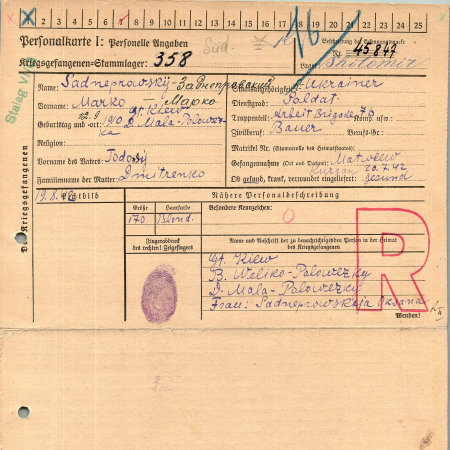 1 2 3 4 5 6 7 8 9 10 11 12 13 14 15 16 17 18 19 20 21 22 23 24 25
Personalkarte I: Personelle Angaben
Kriegsgefangenen-Stammlager: 358
Süd.
16
Beschriftung der Erkennungsmarke
Nr. 45847
Lager: Shitomir
Stalag VIII
Des Kriegsgefangenen
Name: Sadneprowskij-Заднепровский
Vorname: Marko – Марко
Geburtstag und -ort: 12.9. 1910 Gt. Kiew
D. Mala-Polowez-
ka
Religion:
Vorname des Vaters: Todosij
Familienname der Mutter: Dmitrenko
Staatsangehörigkeit: Ukrainer
Dienstgrad: Soldat
Truppenteil: Arbeit Brigade 76 Komp. usw.:
Zivilberuf: Bauer Berufs-Gr.:
Matrikel Nr. (Stammrolle des Heimatstaates):
Gefangennahme (Ort und Datum): Matweew
Kurgan 20.7.42
Ob gesund, krank, verwundet eingeliefert: gesund
19.8.42 Lichtbild
Nähere Personalbeschreibung
Größe Haarfarbe Besondere Kennzeichen:
170 Blond.
Fingerabdruck
des rechten! Zeigefingers
Name und Anschrift der zu benachrichtigenden Person in der Heimat
des Kriegsgefangenen
Gt. Kiew
B. Weliko-Polowezky
D. Mala-Polowezky
Frau: Sadneprowskaja Oksana
R
Wenden!